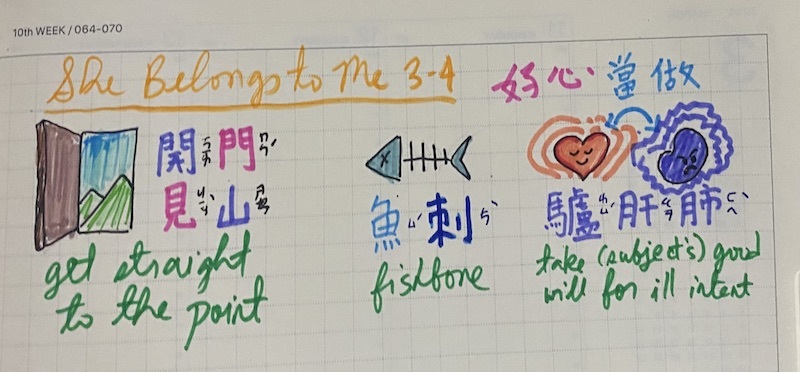 10th WEEK / 064-070
She Belongs to Me 3-4
好心當做
開門
見山
get straight
to the point
魚刺
fishbone
驢肝肺
take (subject's) good
will for ill intent